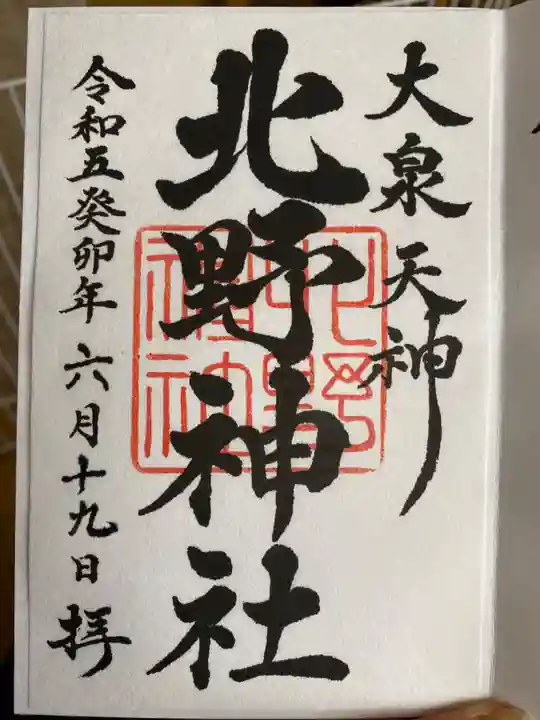 大泉天神
北野神社
令和五癸卯年六月十九日 拝
北野
神社